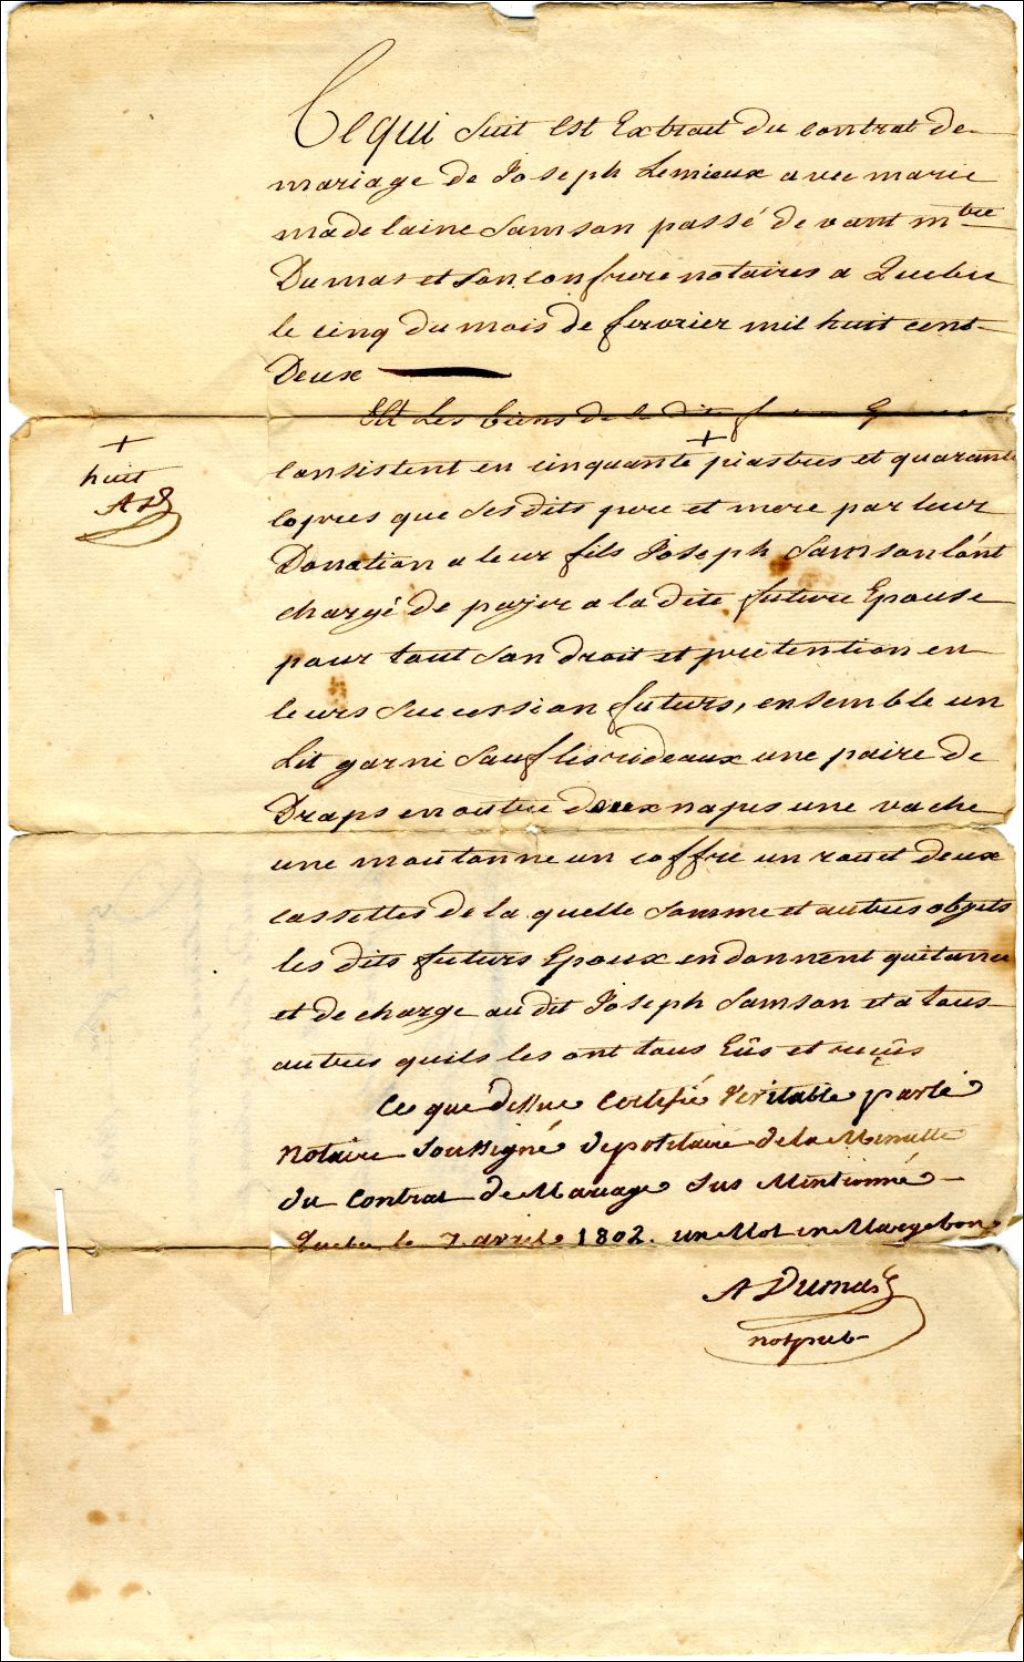 Ce qui suit est Extrait du contrat de
mariage de Joseph Lemieux avec marie
madelaine Samson passé devant mtre
Dumas et son confrere notaires a Quebec
le cinq du mois de fevrier mil huit cent
Deux
Et Les biens de la dite
+
huit
AD
consistent en cinquante + piastres et quarante
copres que ses dits pere et mere par leur
Donation a leur fils Joseph Samson l'ont
chargé de payer a la dite future Epouse
pour tout son droit et pretention en
leurs sucession futurs, ensemble un
Lit garni sauf les rideaux une paire de
Draps en outre deux napes une vache
une moutonne un coffre un rouet deux
cassettes de la quelle somme et autres objets
les dits futurs Epoux en donnent quitance
et decharge au dit Joseph Samson et a tous
autres quils les ont tous Eûs et reçûs
Ce que dessus Certifié Veritable par le
Notaire Soussigné depositaire de la Minutte
du Contrat de Mariage sus Mentionné
Quebec le 7 avril 1802. un Mot en Marge bon
A Dumas
not pub